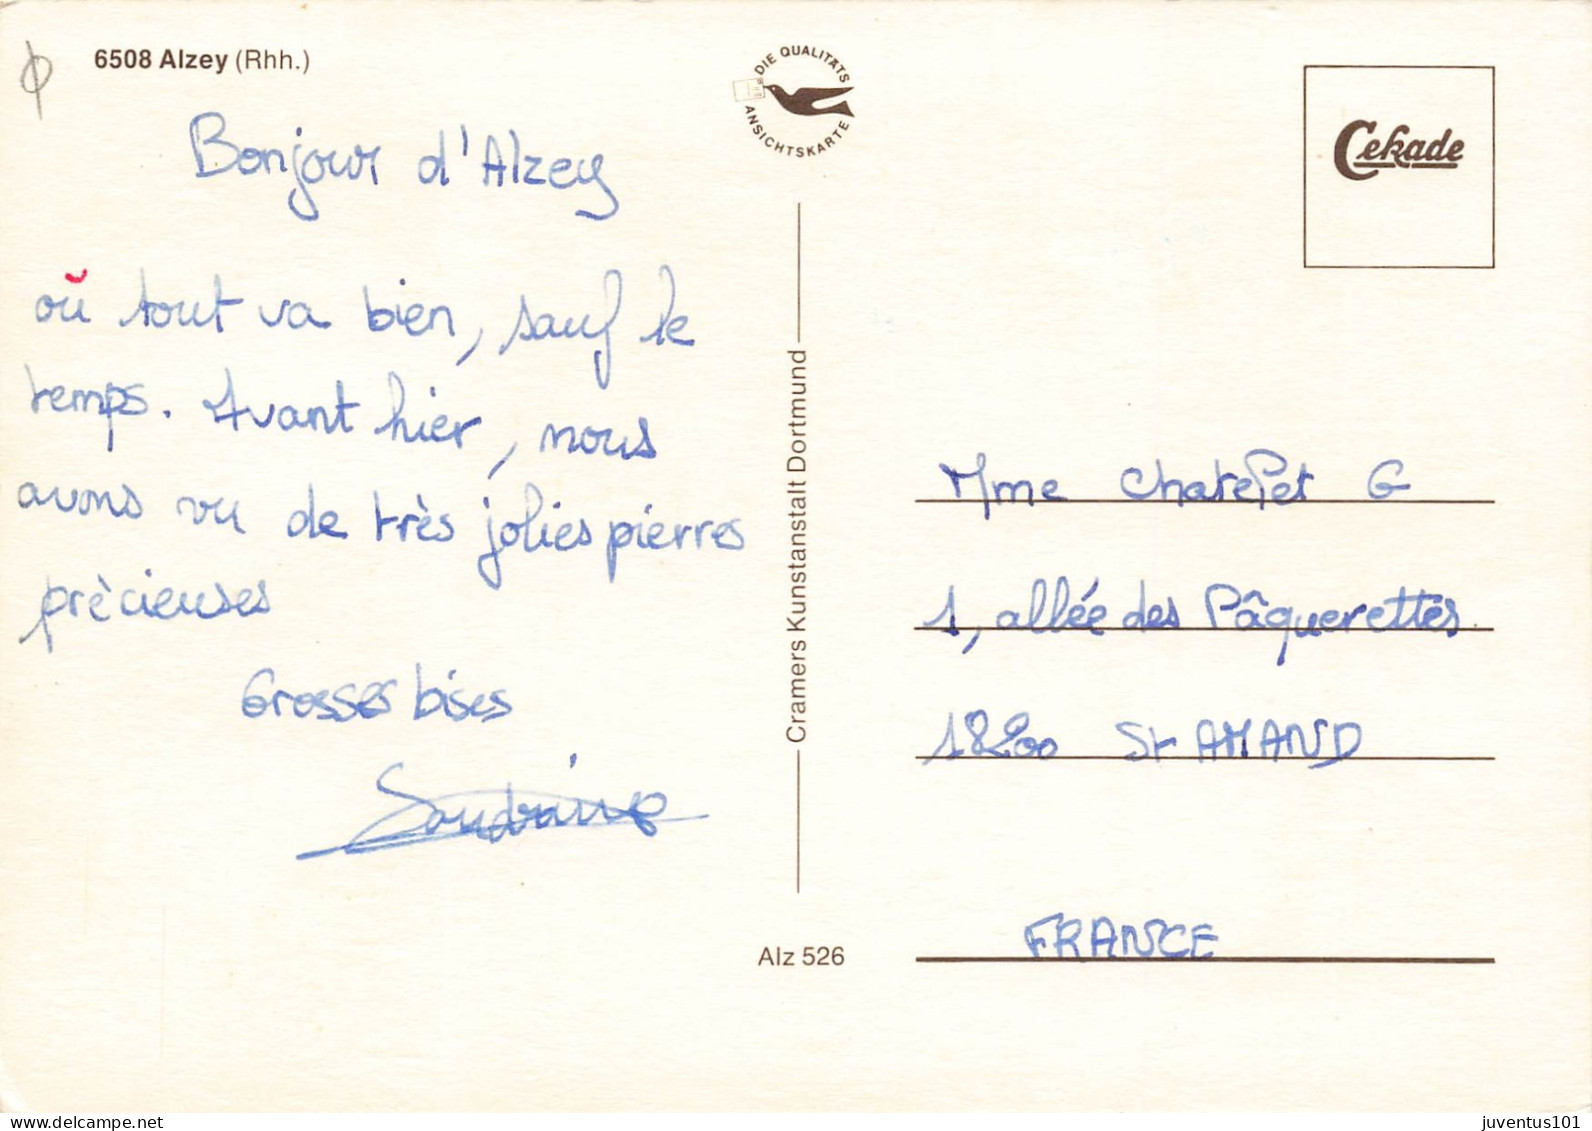 6508 Alzey (Rhh.)
Bonjour d'Alzey
où tout va bien, sauf le
temps. Avant hier, nous
avons vu de très jolies pierres
précieuses
Grosses bises
Sandrine
DIE QUALITÄTS
ANSICHTSKARTE
Cramers Kunstanstalt Dortmund
Alz 526
Cekade
Mme Chatelet G
1, allée des Pâquerettes
18200 St AMAND
FRANCE
delcampe.net
juventus101